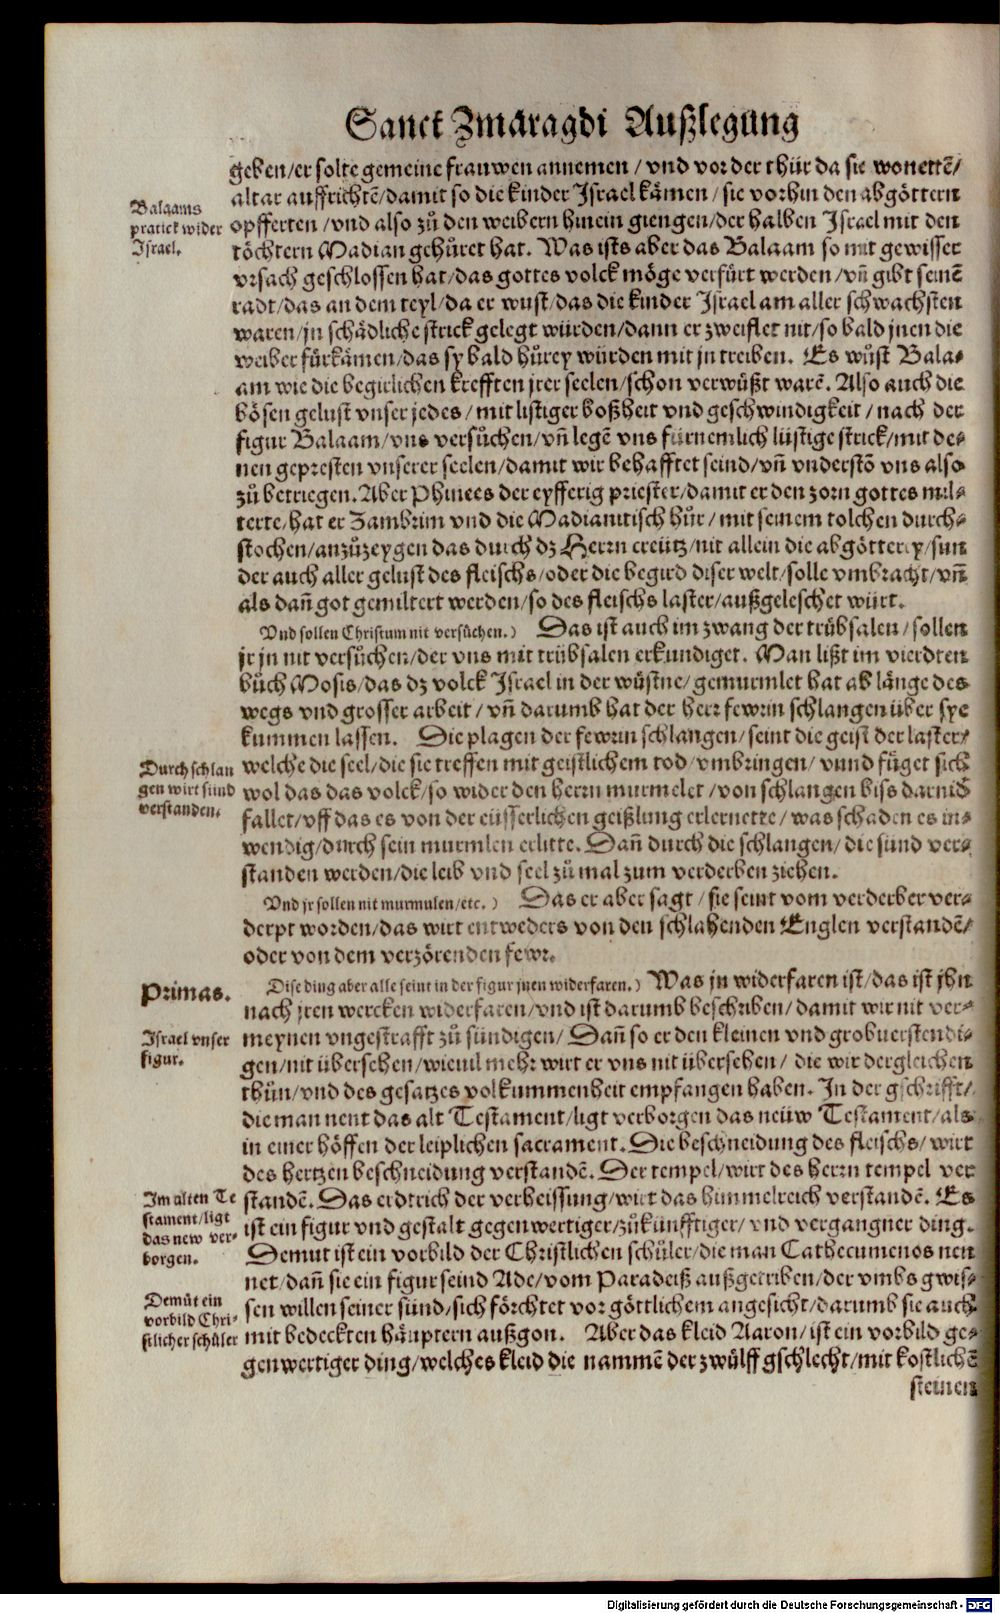 Sanct Zmaragdi Außlegung
geben/er solte gemeine frauwen annemen / vnd vor der thür da sie wonettẽ/
altar auffrichtẽ/damit so die kinder Israel kämen / sie vorhin den abgöttern
opfferten /vnd also zů den weibern hinein giengen/der halben Israel mit den
töchtern Madian gehůret hat. Was ists aber das Balaam so mit gewisser
vrsach geschlossen hat/das gottes volck möge verfürt werden /vñ gibt seinẽ
radt/das an dem teyl/da er wust/das die kinder Israel am aller schwachsten
waren/jn schädliche strick gelegt würden/dann er zweiflet nit/so bald jnen die
weiber fürkämen/das sy bald hůrey würden mit jn treiben. Es wůst Bala-
am wie die begirlichen krefften jrer seelen/schon verwůßt warẽ. Also auch die
bösen gelust vnser jedes / mit listiger boßheit vnd geschwindigkeit / nach der
figur Balaam/vns versůchen/vñ legẽ vns fürnemlich lüstige strick/mit de-
nen gepresten vnserer seelen/damit wir behafftet seind/vñ vnderstõ vns also
zů betriegen. Aber Phinees der eyfferig priester/damit er den zorn gottes mil-
terte/hat er Zambrim vnd die Madianitisch hůr / mit seinem tolchen durch-
stochen/anzůzeygen das durch dz Herrn creütz/nit allein die abgötterey/sun
der auch aller gelust des fleischs/oder die begird diser welt/solle vmbracht/vñ
als dañ got gemiltert werden/so des fleischs laster/außgeleschet würt.
Vnd sollen Christum nit versůchen.) Das ist auch im zwang der trübsalen/sollen
jr jn nit versůchen/der vns mit trübsalen erkundiget. Man lißt im vierdten
bůch Mosis/das dz volck Israel in der wüstne/gemurmlet hat ab länge des
wegs vnd grosser arbeit / vñ darumb hat der herr fewrin schlangen über sye
kummen lassen. Die plagen der fewrin schlangen/seint die geist der laster/
welche die seel/die sie treffen mit geistlichem tod/vmbringen/ vnnd füget sich
wol das das volck/so wider den herrn murmelet /von schlangen biss darnid
fallet/vff das es von der eüsserlichen geißlung erlernette / was schaden es in-
wendig/durch sein murmlen erlitte. Dañ durch die schlangen/die sünd ver-
standen werden/die leib vnd seel zů mal zum verderben ziehen.
Vnd jr sollen nit murmulen/etc. ) Das er aber sagt / sie seint vom verderber ver-
derpt worden/das wirt entweders von den schlahenden Englen verstandẽ/
oder von dem verzörenden fewr.
Dise ding aber alle seint in der figur jnen widerfaren.) Was jn widerfaren ist/das ist jhn
nach jren wercken widerfaren/vnd ist darumb beschriben/damit wir nit ver-
meynen vngestrafft zů sündigen/ Dañ so er den kleinen vnd grobuerstendi-
gen/nit übersehen/wieuil mehr wirt er vns nit übersehen/ die wir dergleichen
thůn/vnd des gesatzes volkummenheit empfangen haben. In der gschrifft/
die man nent das alt Testament/ligt verborgen das neüw Testament/als
in einer höffen der leiplichen sacrament. Die beschneidung des fleischs/wirt
des hertzen beschneidung verstandẽ. Der tempel/wirt des herrn tempel ver
standẽ. Das erdtrich der verheissung/wirt das himmelreich verstandẽ. Es
ist ein figur vnd gestalt gegenwertiger/zůkünfftiger/ vnd vergangner ding.
Demut ist ein vorbild der Christlichen schůler/die man Cathecumenos nen
net/dañ sie ein figur seind Ade/vom Paradeiß außgetriben/der vmbs gwis-
sen willen seiner sünd/sich förchtet vor göttlichem angesicht/darumb sie auch
mit bedeckten häuptern außgon. Aber das kleid Aaron/ist ein vorbild ge-
genwertiger ding/welches kleid die nammẽ der zwülff gschlecht/mit kostlichẽ
steinen
Balaams
pratick wider
Israel.
Durch schlan
gen wirt sünd
verstanden.
Primas.
Israel vnser
figur.
Im alten Te
stament/ligt
das new ver-
borgen.
Demůt ein
vorbild Chri-
stlicher schůler
Digitalisierung gefördert durch die Deutsche Forschungsgemeinschaft - DFG